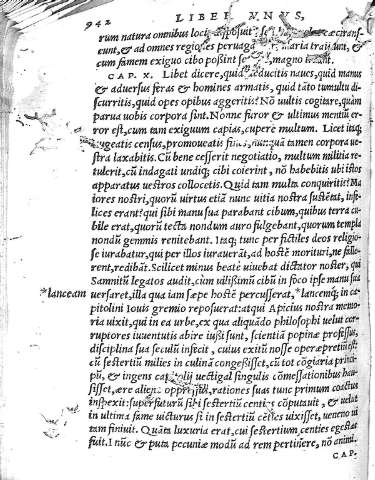 942 LIBER VNVS,
rum natura omnibus loci
eunt, & ad omnes regiones peruaga maria traijciunt, &
cum famem exiguo cibo possint magno irritant.
CAP. X. Libet dicere, quid deducitis naues, quid manus
& aduersus feras & homines armatis, quid tāto tumultu di-
scurritis, quid opes opibus aggeritis? Nō uultis cogitare, quàm
parua uobis corpora sint. Nonne furor & ultimus mentiū er-
ror est, cum tam exiguum capias, cupere multum. Licet itaq;
augeatis census, promoueatis fines, nunquā tamen corpora ve-
stra laxabitis. Cū bene cesserit negotiatio, multum militia re-
tulerit, cū indagati undiq; cibi coierint, nō habebitis ubi istos
apparatus uestros collocetis. Quid tam multa conquiritis? Ma
iores nostri, quorū uirtus etiā nunc uitia nostra sustētat, infe-
lices erant? qui sibi manu sua parabant cibum, quibus terra cu-
bile erat, quorū tecta nondum auro fulgebant, quorum templa
nondū gemmis renitebant. Itaq; tunc per fictiles deos religio-
se iurabatur, qui per illos iurauerāt, ad hostē morituri, ne falle-
rent, redibāt. Scilicet minus beatè uiuebat dictator noster, qui
Samnitū legatos audit, cùm uilissimū cibū in foco ipse manu sua
*lanceam uersaret, illa qua iam sæpe hostē percusserat, *lancemq; in ca-
pitolini Iouis gremio reposuerat: atqui Apicius nostra memo-
ria uixit, qui in ea urbe, ex qua aliquādo philosophi uelut cor-
ruptores iuuentutis abire iussi sunt, scientiā popinæ professus,
disciplina sua seculū infecit, cuius exitū nosse operæpretium est:
cū sestertiū milies in culinā congessisset, cū tot cōgiaria princi-
pū, & ingens capitolij uectigal singulis comessationibus hau-
sisset, ære alieno oppressus, rationes suas tunc primum coactus
inspexit: superfuturū sibi sestertiū centies cōputauit, & uelut
in ultima fame uicturus si in sestertiū cēties uixisset, ueneno ui
tam finiuit. Quāta luxuria erat, cui sestertium centies egestas
fuit. I nūc & puta pecuniæ modū ad rem pertinere, nō animi.
CAP.